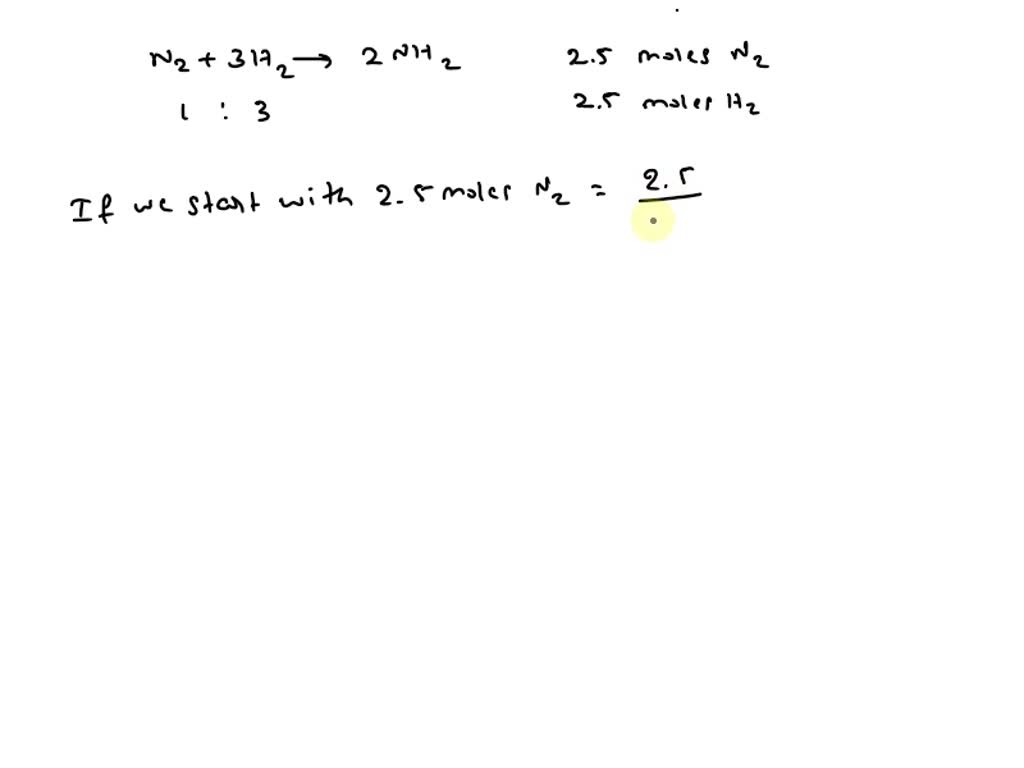 N₂ + 3H₂ → 2 NH₂ 2.5 moles N₂
1 : 3 2.5 moles H₂
If we start with 2.5 moles N₂ = 2.5